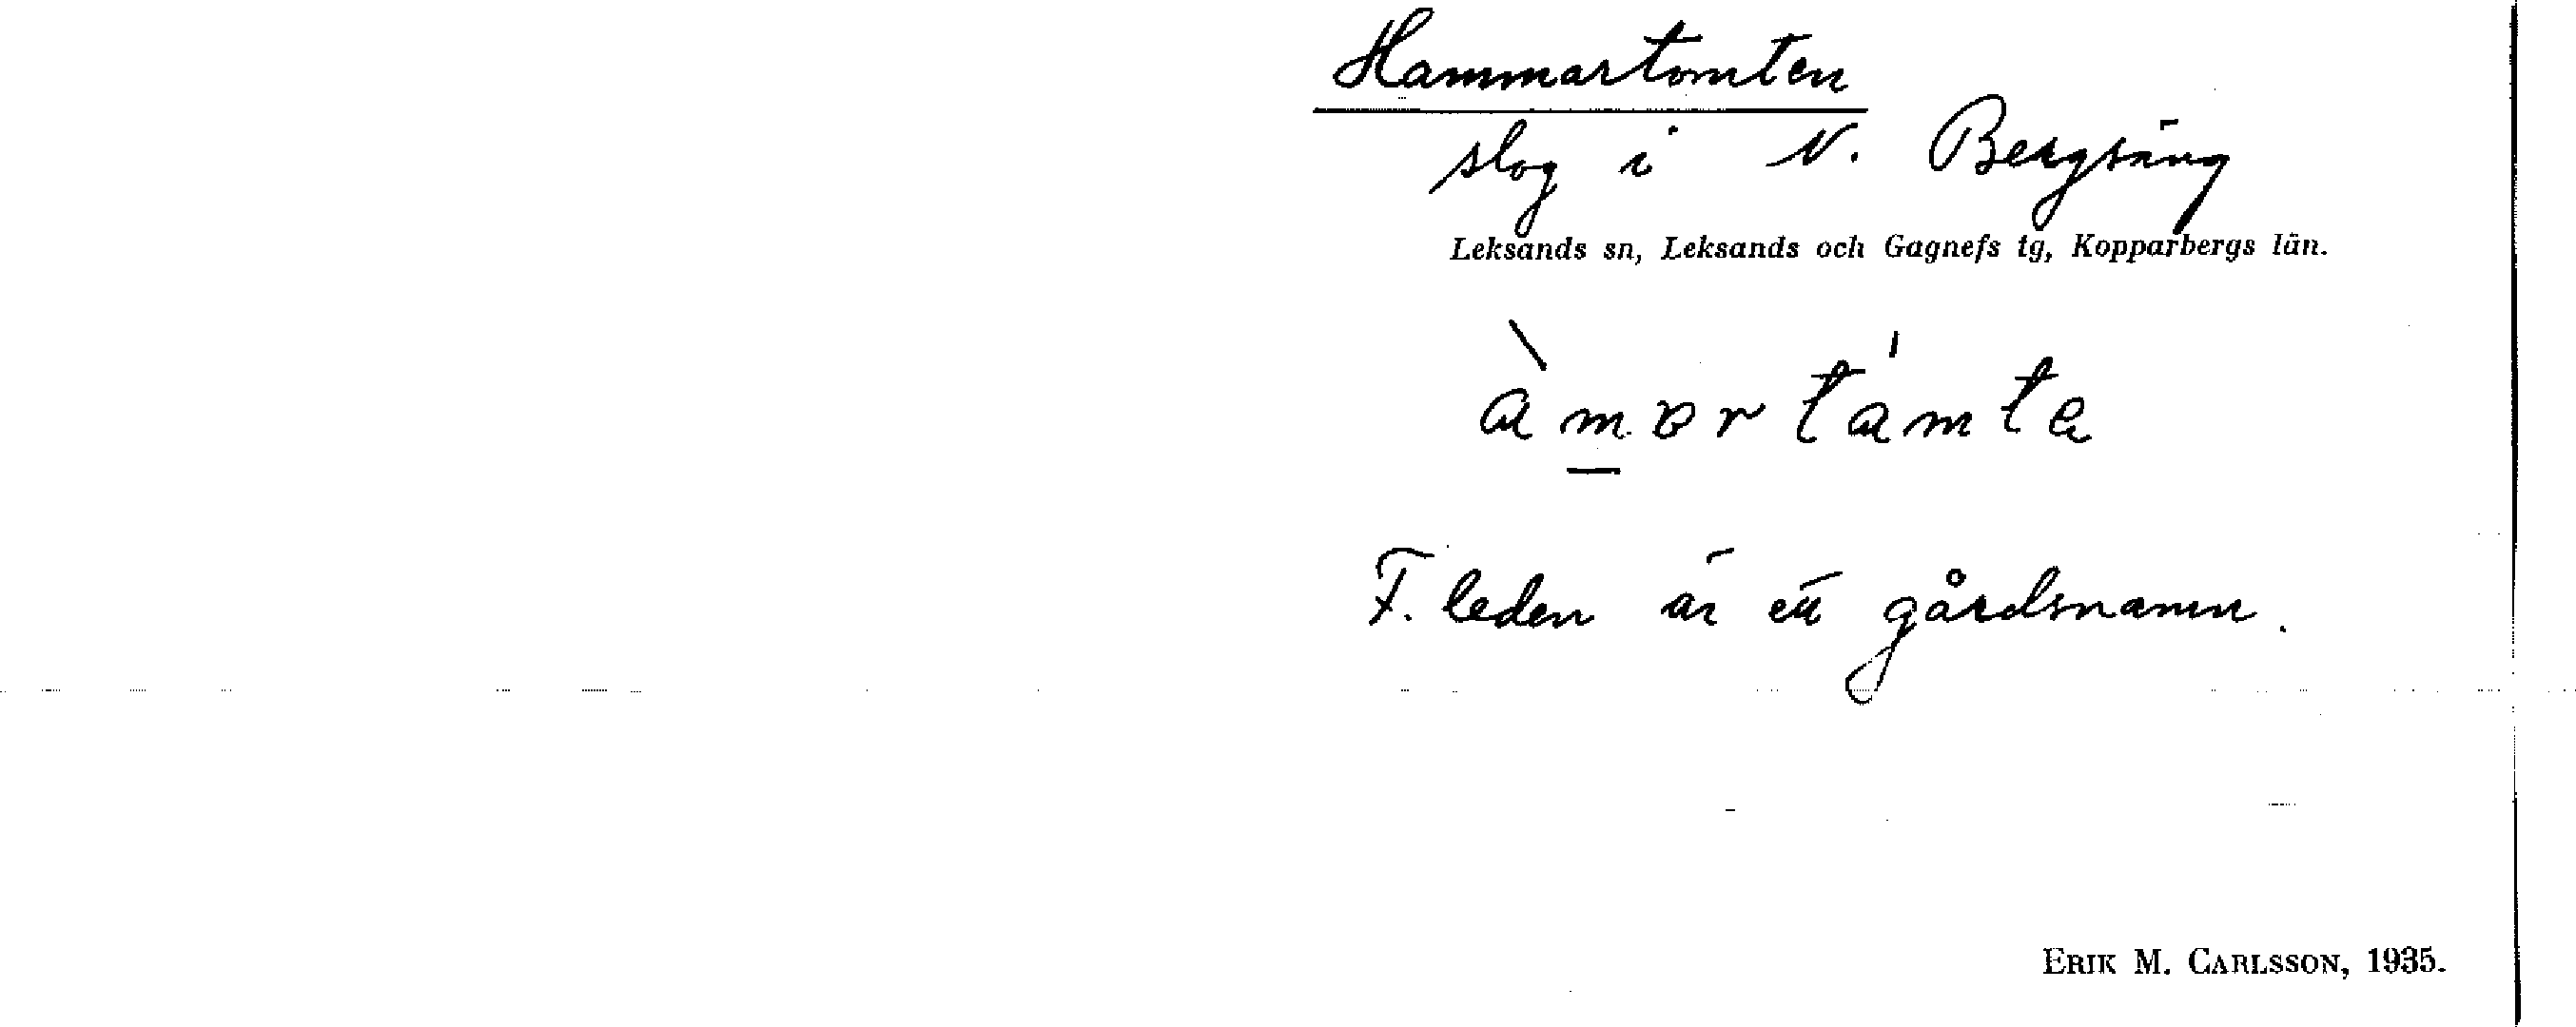 Hammartomten
slog i N. Bergsäng
Leksands sn, Leksands och Gagnefs tg, Kopparbergs län.
F. leden är ett gårdsnamn.
ERIK M. CARLSSON, 1935.